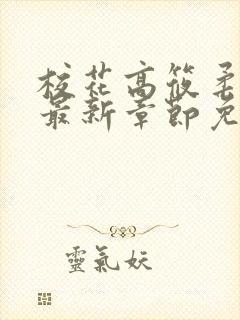 校花高筱柔
最新章節免
靈氣妖